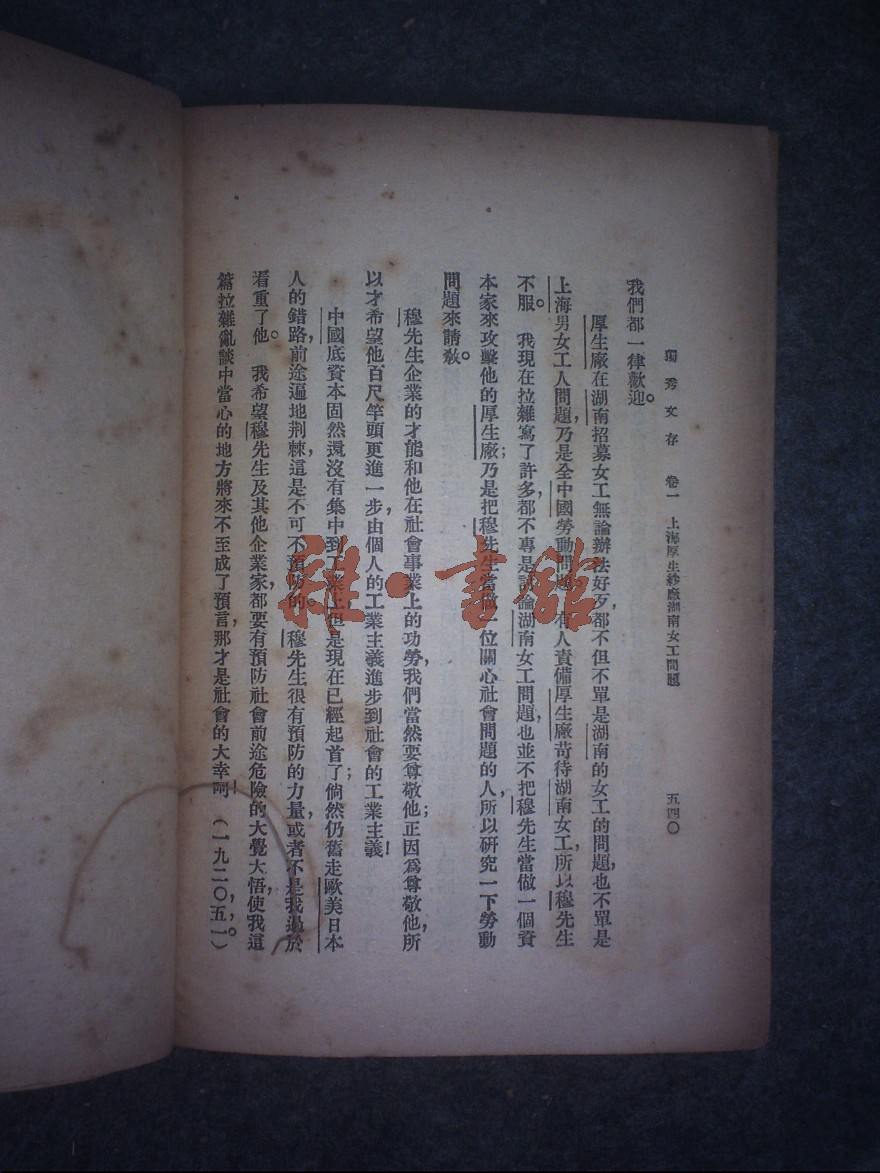 獨秀文存 卷一 上海厚生紗廠湖南女工問題 五四〇
我們都一律歡迎。
厚生廠在湖南招募女工無論辦法好歹,都不但不單是湖南的女工的問題,也不單是
上海男女工人問題,乃是全中國勞動問題 有人責備厚生廠苛待湖南女工,所以穆先生
不服。 我現在拉雜寫了許多,都不專是討論湖南女工問題,也並不把穆先生當做一個資
本家來攻擊他的厚生廠;乃是把穆先生當做一位關心社會問題的人,所以研究一下勞動
問題來請教。
穆先生企業的才能和他在社會事業上的功勞,我們當然要尊敬他;正因爲尊敬他,所
以才希望他百尺竿頭更進一步,由個人的工業主義進步到社會的工業主義!
中國底資本固然還沒有集中到工業上,但是現在已經起首了;倘然仍舊走歐美日本
人的錯路,前途遍地荆棘,這是不可不預防的。 穆先生很有預防的力量,或者不是我過於
看重了他。 我希望穆先生及其他企業家都要有預防社會前途危險的大覺大悟,使我這
篇拉雜亂談中當心的地方將來不至成了預言,那才是社會的大幸呵! (一九二〇,五,一。)
雜·書館